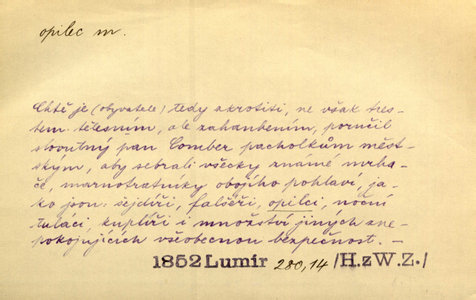 opilec m.
Chtě je (obyvatele) tedy zkrotiti, ne však tres-
tem tělesním, ale zahanbením, poručil
slovutný pan Comber pacholkům měst-
ským, aby sebrali všecky známé mrha-
če, marnotratníky obojího pohlaví, ja-
ko jsou: šejdíři, falšéři, opilci, noční
tuláci, kuplíři i množství jiných zne-
pokojujících všeobecnou bezpečnost. –
1852 Lumír 280,14 /H.zW.Z./